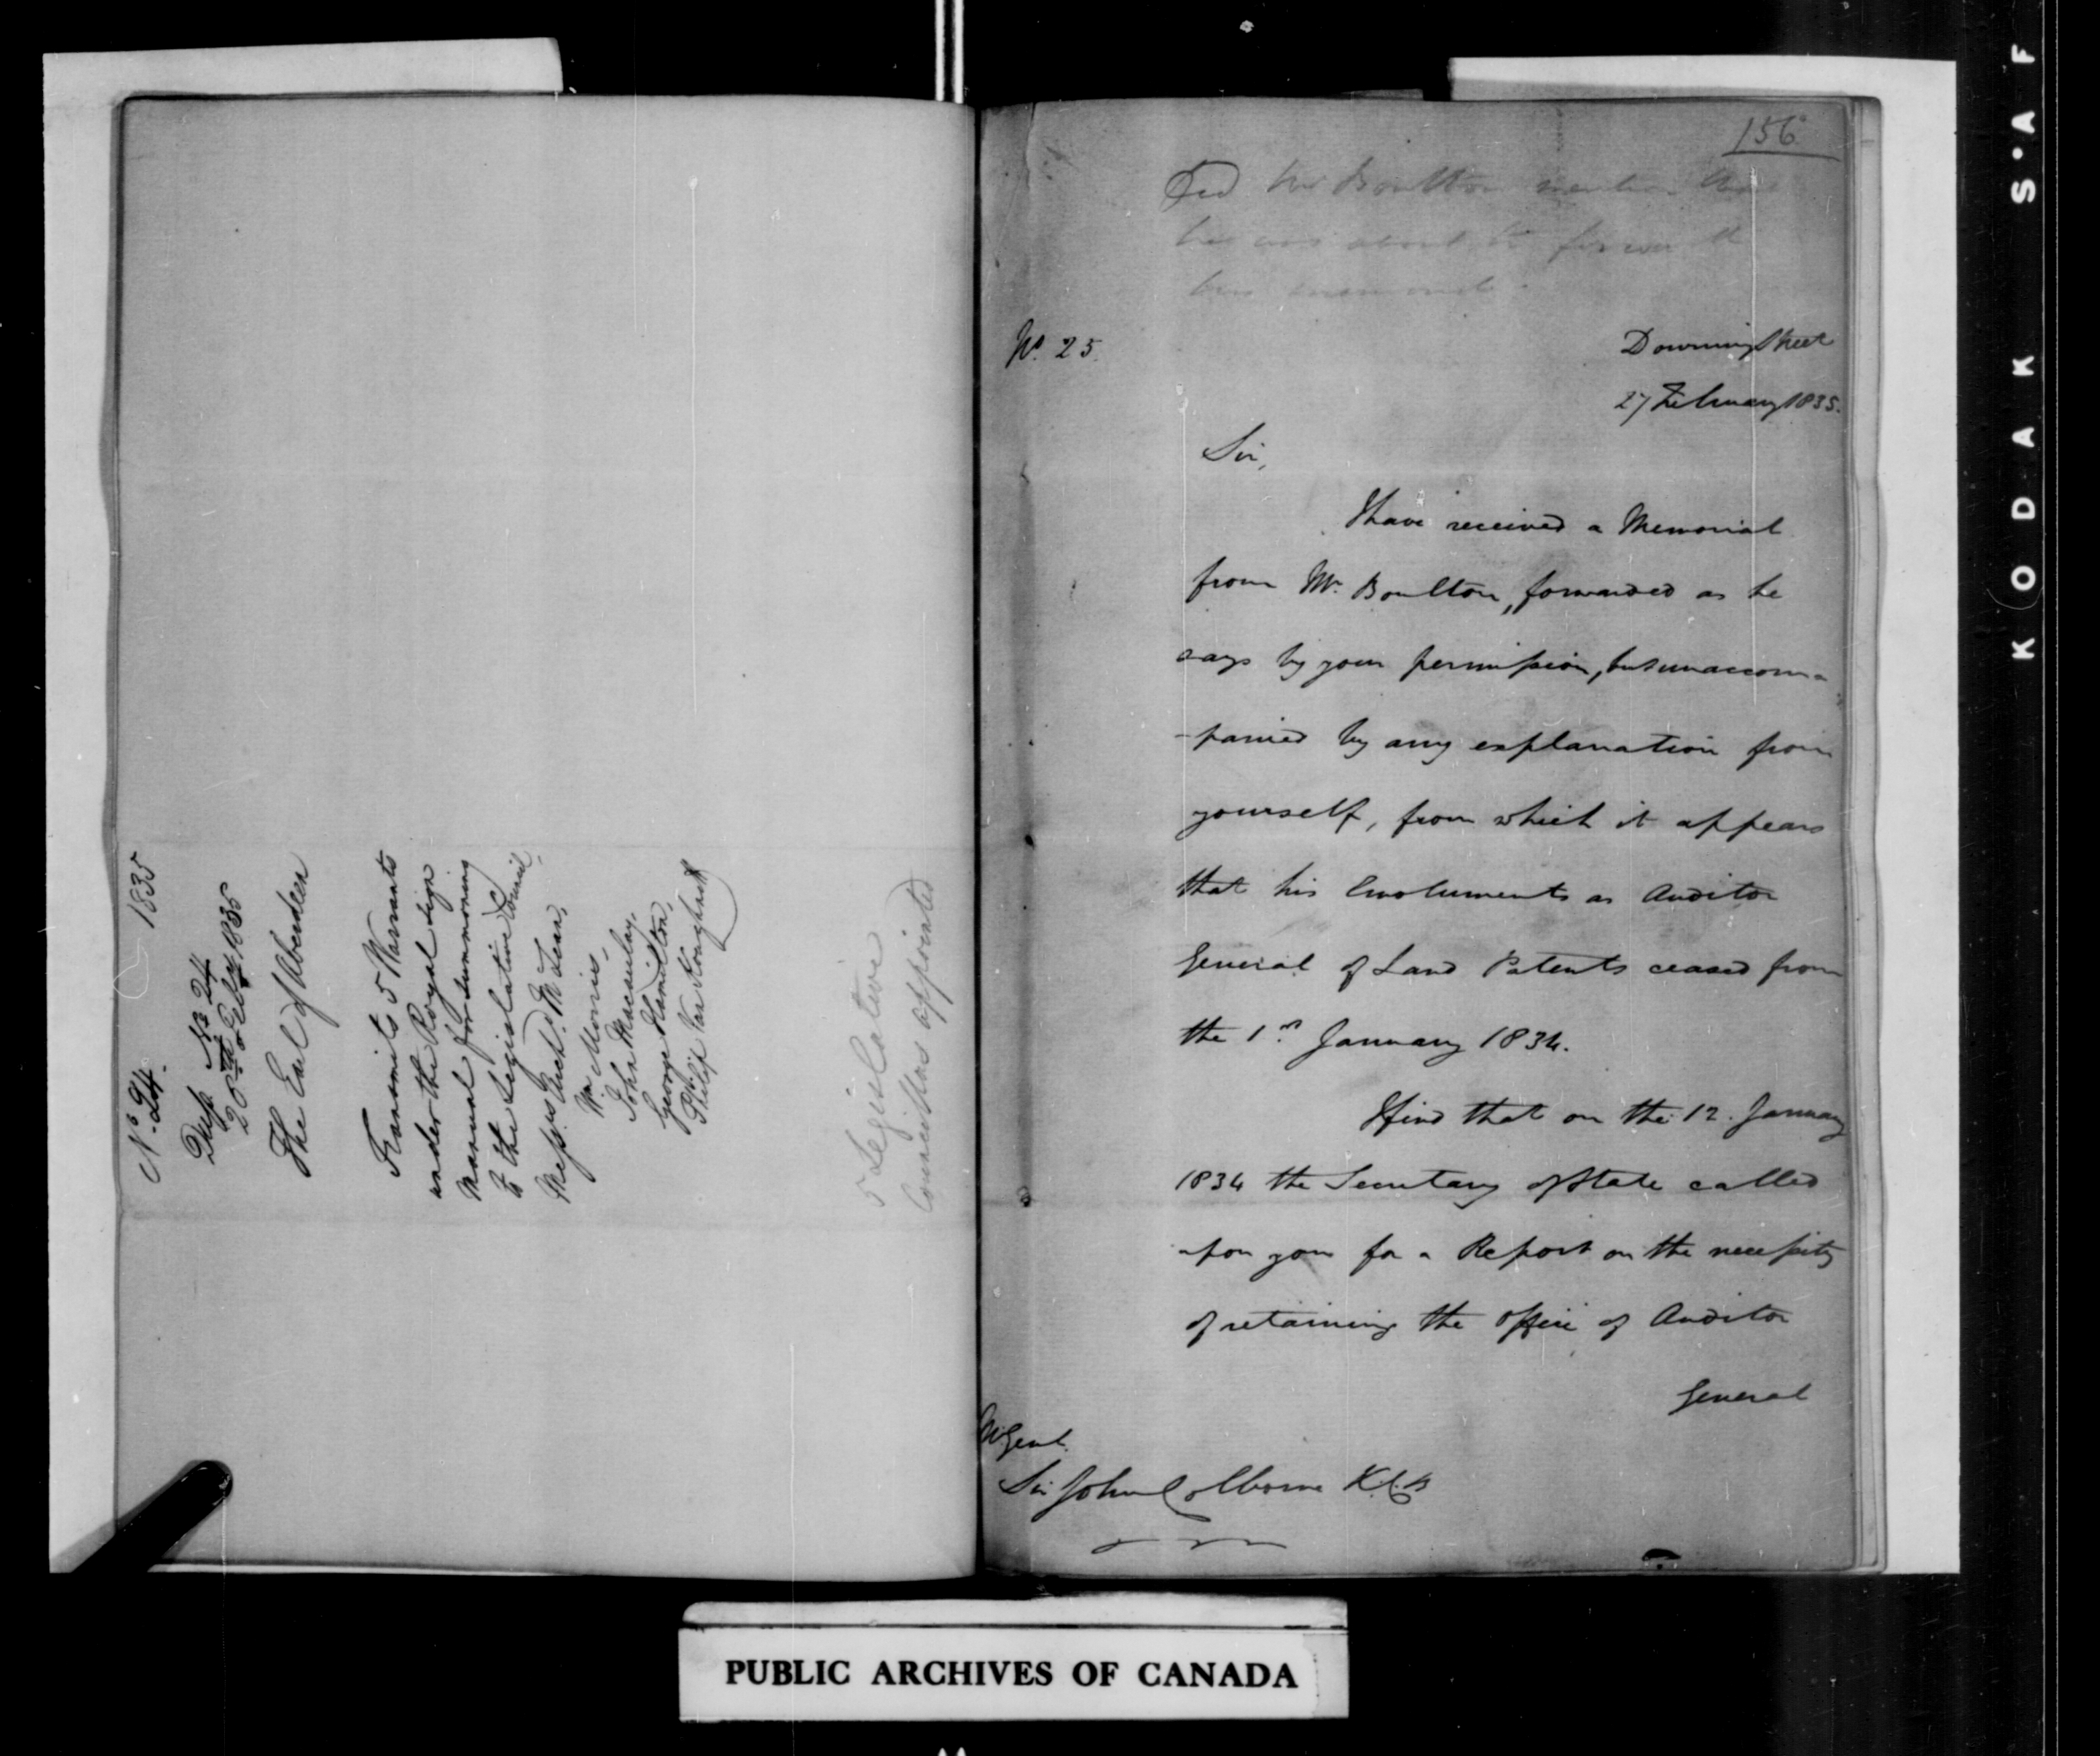 Nº 24. 1835
Desp Nº 24
20th Feby 1835
The Earl of Aberdeen
Transmits 5 Warrants
under the Royal Sign
Manual for summoning
to the Legislative Council,
Messrs Archd. McLean,
Wm Morris,
John Macaulay,
George Hamilton,
Philip VanKoughnett
5 Legislative
Councillors appointed
156
Did Mr Boulton mention that
he was about to forward
his memorial
No. 25.
Downing Street
27 February 1835.
Sir,
I have received a Memorial
from Mr. Boulton, forwarded as he
says by your permission, but unaccom-
-panied by any explanation from
yourself, from which it appears
that his Emoluments as Auditor
General of Land Patents ceased from
the 1st January 1834.
I find that on the 12. January
1834 the Secretary of State called
upon you for a Report on the necessity
of retaining the Office of Auditor
General
M Genl.
Sir John Colborne K.C.B
PUBLIC ARCHIVES OF CANADA
KODAK S·AF